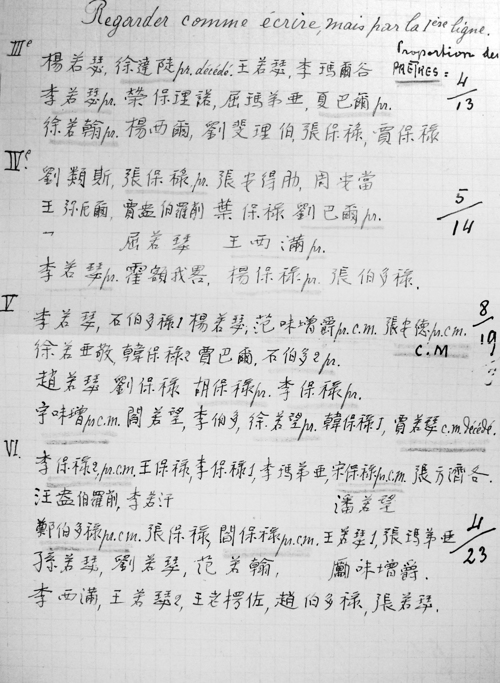 Regarder comme écrire, mais par la 1ère ligne.
Proportion des
PRÊTRES =
IIIe
楊若瑟, 徐達陡pr. décédé. 王若瑟, 李瑪爾谷
4/13
李若瑟pr. 榮保理諾, 屈瑪弟亜, 夏巴爾pr.
徐若翰pr. 楊西爾, 劉斐理伯, 張保祿, 賈保祿
IVe
劉類斯, 張保祿pr. 張安得肋, 周安當
5/14
王弥厄爾, 賈盎伯羅削 葉保祿 劉巴爾pr.
屈若瑟 王西满pr.
李若瑟pr. 霍額我畧, 楊保祿pr. 張伯多祿.
V
8/19
李若瑟, 石伯多祿1 楊若瑟, 范味增爵pr. c.m. 張安德pr. c.m.
C.M
徐若亜敬 韓保祿2 賈巴爾, 石伯多2 pr.
趙若瑟 劉保祿 胡保祿pr. 李保祿pr.
味增pr c.m. 閻若望, 李伯多, 徐若望pr. 韓保祿1, 賈若瑟c.m. décédé.
VI.
李保祿2, pr. c.m. 王保祿, 李保祿1, 李瑪弟亜, 宋保祿pr. c.m. 張方濟各.
汪盎伯羅削, 李若汗 潘若望
4/23
鄭伯多祿pr. c.m. 張保祿, 閻保祿pr. c.m. 王若瑟1, 張瑪弟亜
孫若瑟, 劉若瑟, 范若翰, 味增爵.
李西满, 王若瑟2, 王老楞佐, 趙伯多祿, 張若瑟.